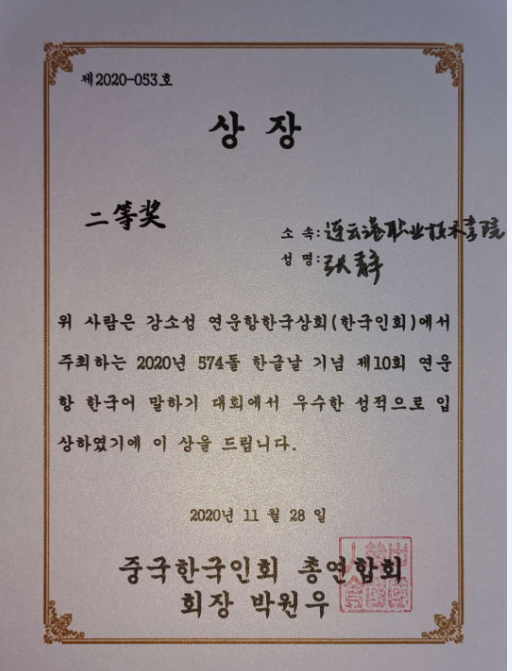 제2020-053호
상 장
二等奖
소 속: 连云港职业技术学院
성 명: 张静
위 사람은 강소성 연운항한국상회(한국인회)에서
주최하는 2020년 574돌 한글날 기념 제10회 연운
항 한국어 말하기 대회에서 우수한 성적으로 입
상하였기에 이 상을 드립니다.
2020년 11 월 28 일
중국한국인회 총연합회
회장 박원우